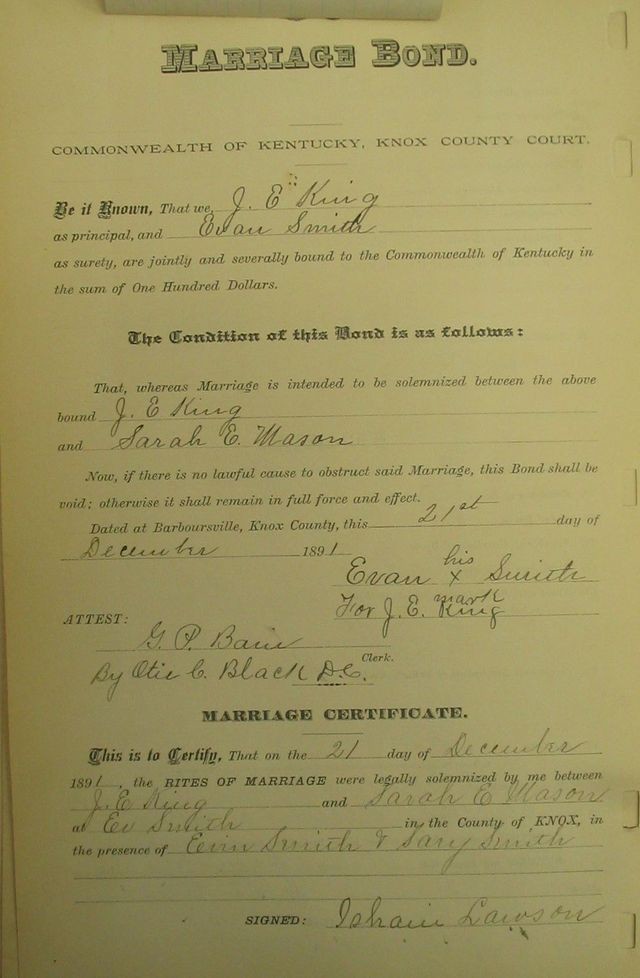 MARRIAGE BOND.
COMMONWEALTH OF KENTUCKY, KNOX COUNTY COURT.
Be it Known, That we, J. E. King
as principal, and Evan Smith
as surety, are jointly and severally bound to the Commonwealth of Kentucky in
the sum of One Hundred Dollars.
The Condition of this Bond is as follows:
That, whereas Marriage is intended to be solemnized between the above
bound J. E King
and Sarah E. Mason
Now, if there is no lawful cause to obstruct said Marriage, this Bond shall be
void; otherwise it shall remain in full force and effect.
Dated at Barboursville, Knox County, this 21st day of
December 1891
Evan his x mark Smith
For J. E. King
ATTEST:
G. P. Bain
Clerk.
By Otie C. Black D.C.
MARRIAGE CERTIFICATE.
This is to Certify, That on the 21 day of December
1891, the RITES OF MARRIAGE were legally solemnized by me between
J. E King and Sarah E Mason
at Ev Smith in the County of KNOX, in
the presence of Smith & Smith
SIGNED: Isham Lawson